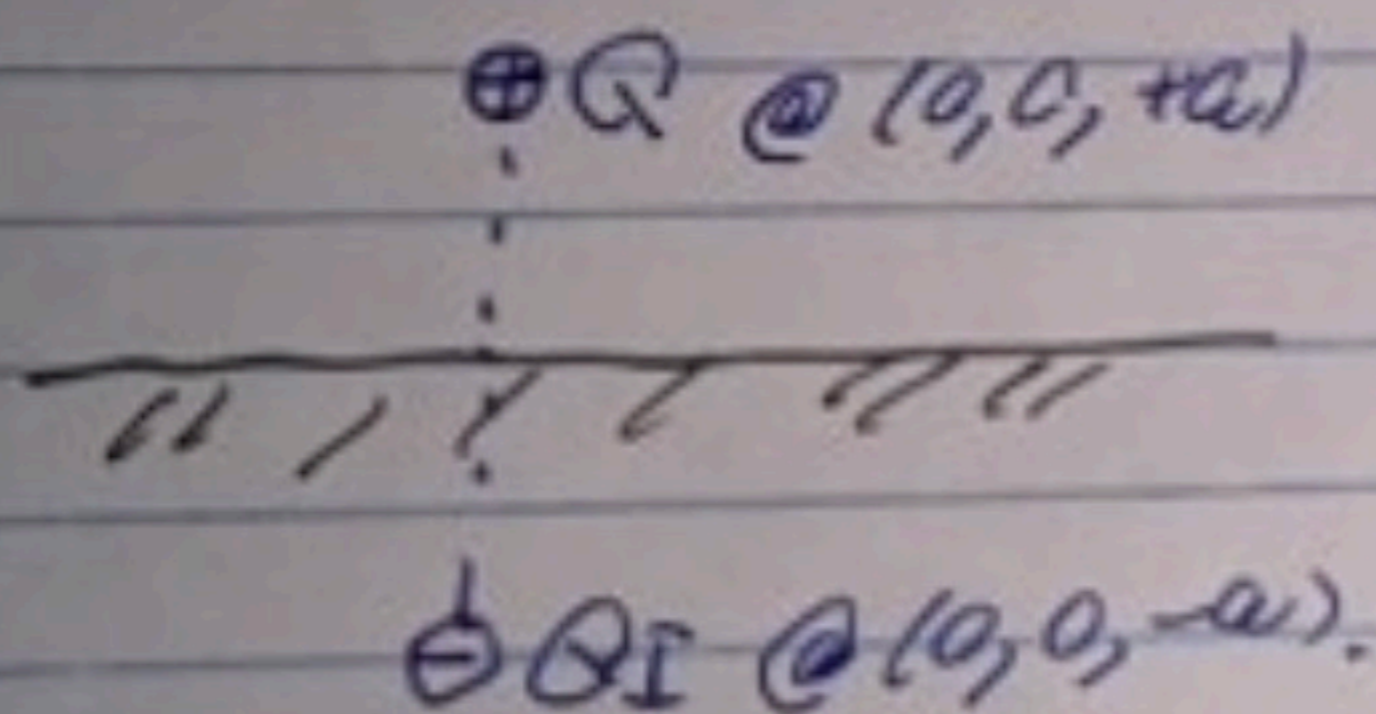 ⊕ Q @ (0,0,+a)
⊖ QI @ (0,0,-a).